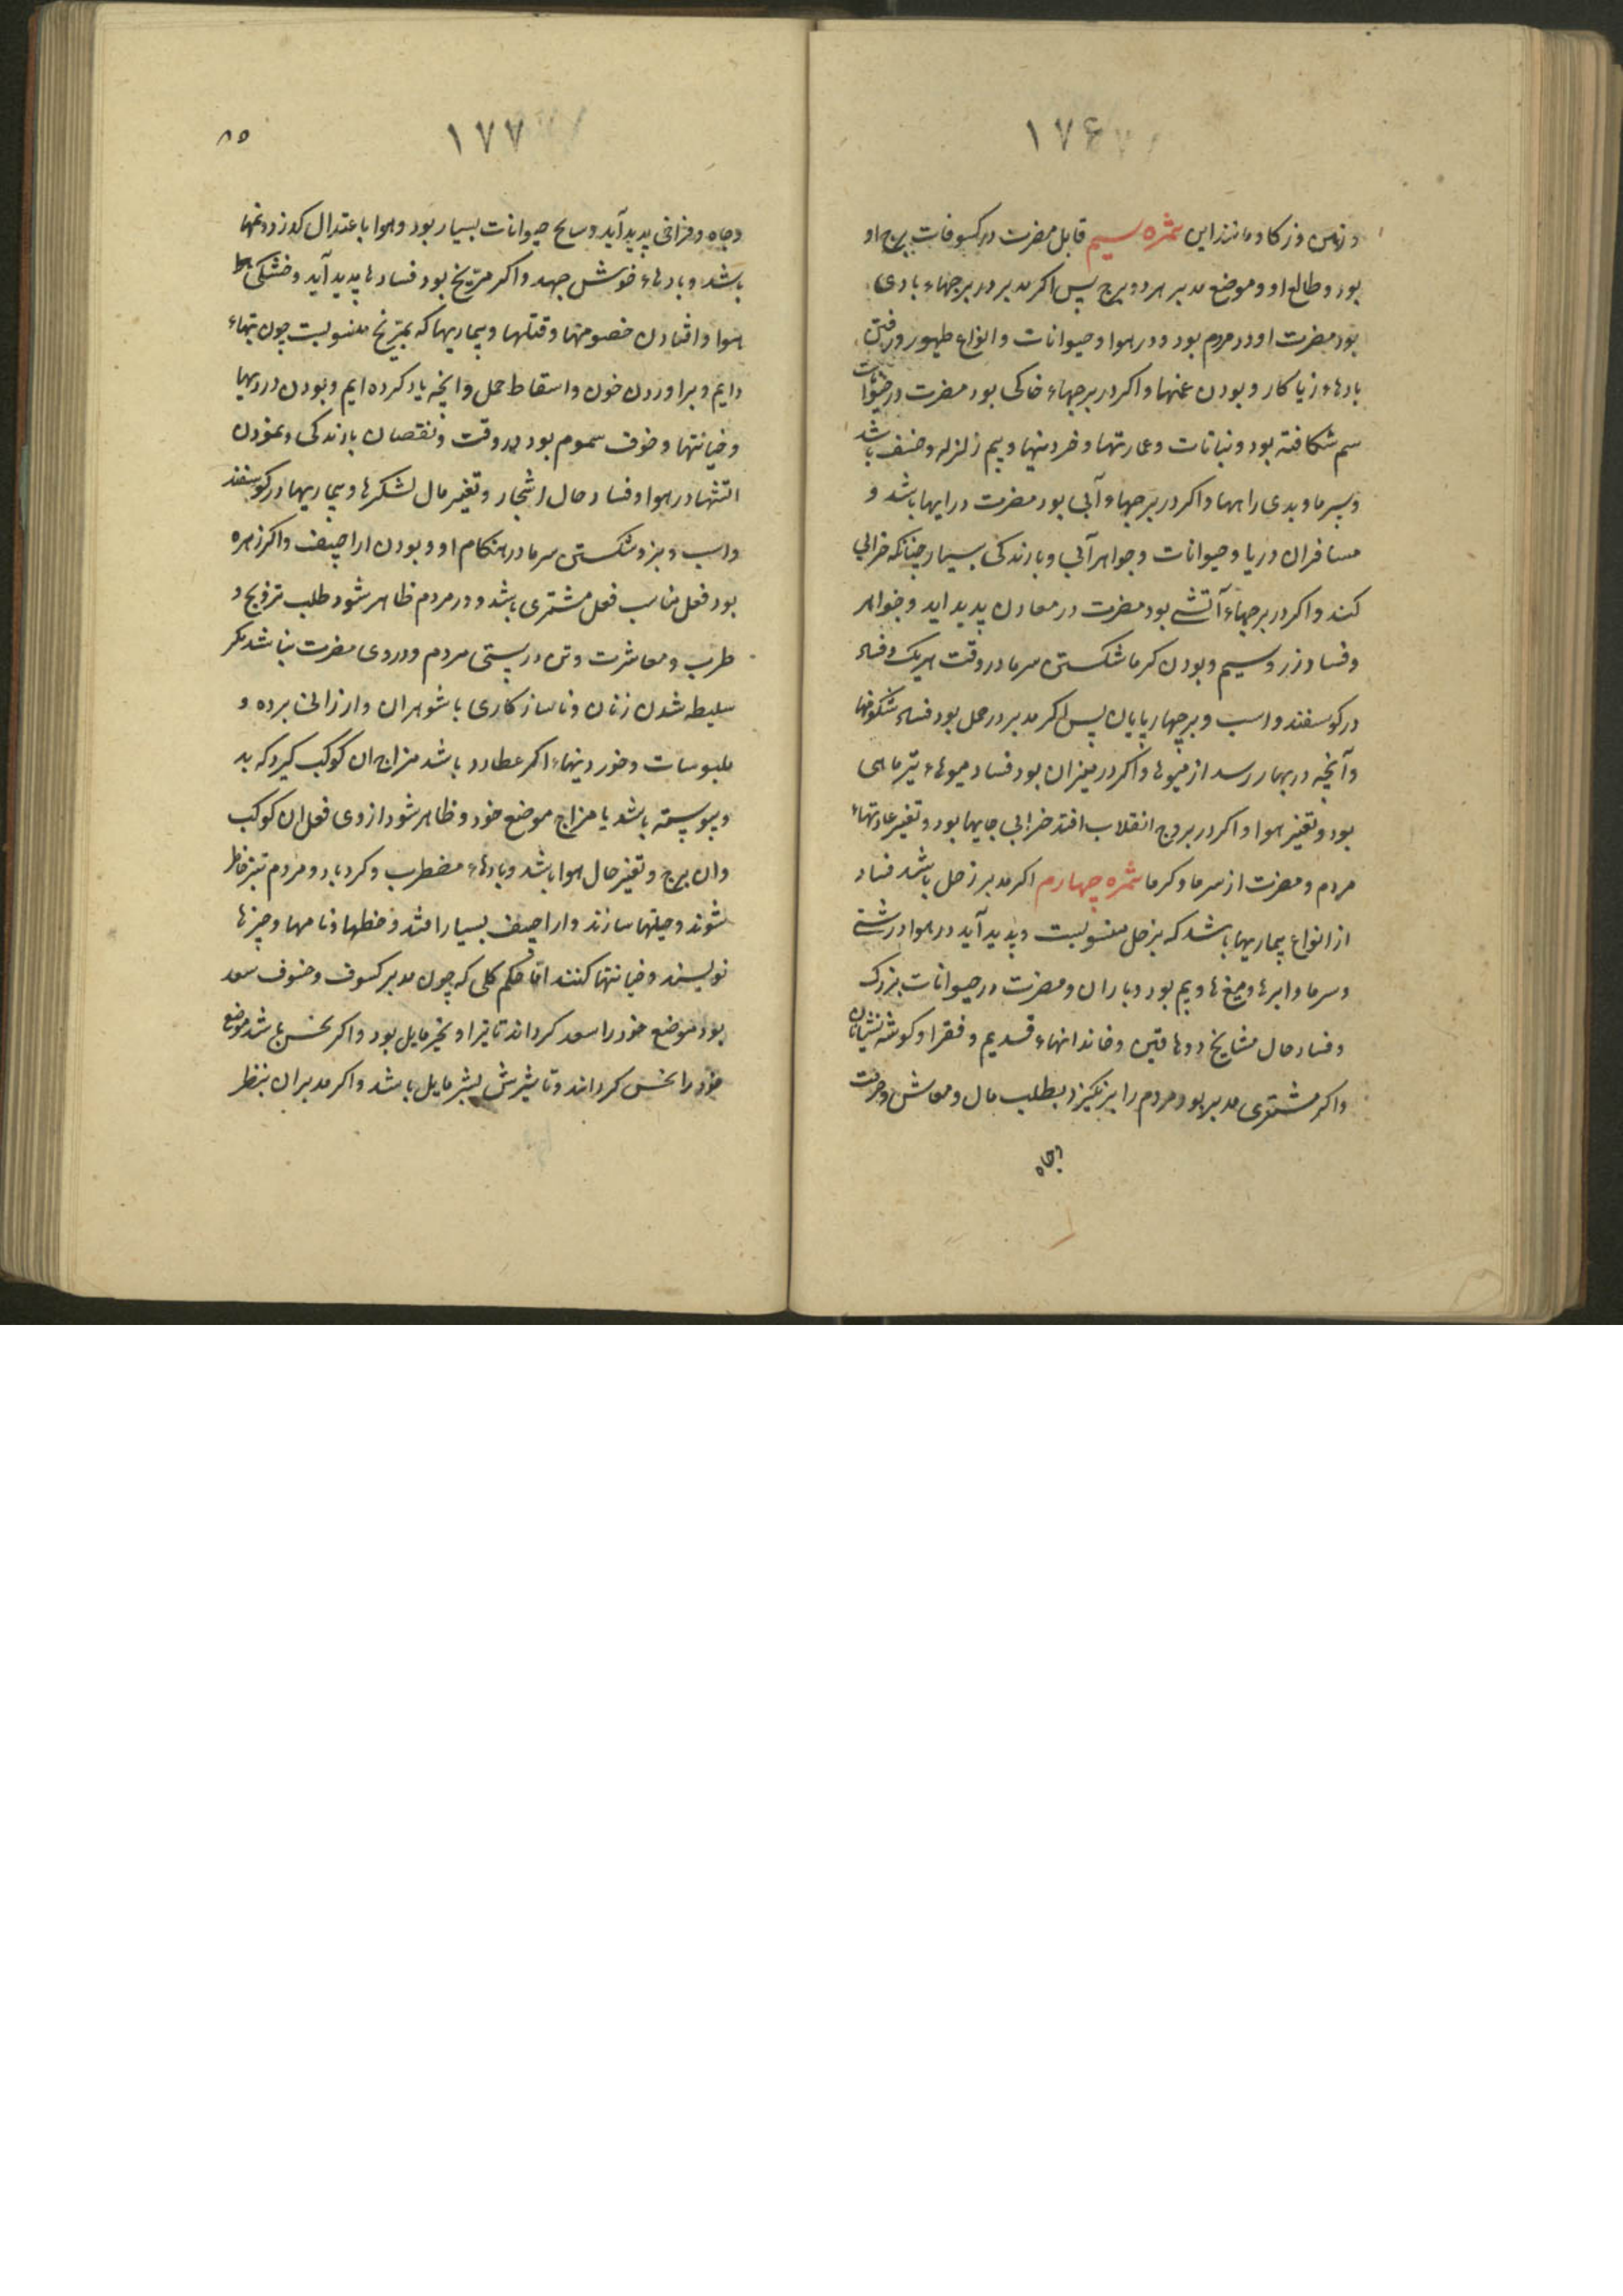 ۱۷۶
و ذهن و زکا و مانند این ثمره سیم قابل مضرت در کسوفات برج او
بود و طالع او و موضع مدبر هر دو برج پس اکر مدبر در برجهاء بادی
بود مضرت او در مردم بود و در هوا و حیوانات و انواع طیور و رفتن
بادهاء زیا کار و بودن غمها و اکر در برجهاء خاکی بود مضرت در حیوانات
سم شکافته بود و نباتات و عمارتها و خردنیها و بیم زلزله و خسف باشد
و سرما و بدی راهها و اکر در برجهاء آبی بود مضرت در ابها باشد و
مسافران دریا و حیوانات و جواهر آبی و بارندکی بسیار چنانکه خرابی
کند و اکر در برجهاء آتشی بود مضرت در معادن پدید اید و جواهر
و فساد زر و سیم و بودن کرما شکستن سرما در وقت هر یک و فساد
در کوسفند و اسب و بر چهارپایان پس اکر مدبر در حمل بود فساد شکوفها
و آنچه در بهار رسد از میوها و اکر در میزان بود فساد میوهاء تیرماهی
بود و تغیر هوا و اکر در بروج انقلاب افتد خرابی جایها بود و تغیر عادتهاء
مردم و مضرت از سرما و کرما ثمره چهارم اکر مدبر زحل باشد فساد
از انواع بیماریها باشد که بزحل منسوبست و پدید آید در هوا درشتی
و سرما و ابرها و میغ ها و بیم بود و باران و مضرت در حیوانات بزرک
و فساد حال مشایخ و دهاقین و خاندانهاء قدیم و فقرا و کوشه نشینان
و اکر مشتری مدبر بود مردم را برنکیزد بطلب مال و معاش و حرمت
وجاه
۱۷۷
۸۵
و جاه و فراخی پدید آید و سایح حیوانات بسیار بود و هوا باعتدال کذرد و نمها
باشد و بادهاء خوش جهد و اکر مریخ بود فسادها پدید آید و خشکی
هوا و افتادن خصومتها و قتلها و بیماریها که بمریخ منسوبست چون تبهاء
دایم و براوردن خون و اسقاط حمل و انچه یاد کرده ایم و بودن دزدیها
و خیانتها و خوف سموم بود در وقت و نقصان بارندکی و نمودن
اتشها در هوا و فساد حال اشجار و تغیر مال لشکرها و بیماریها در کوسفند
و اسب و بز و شکستن سرما در هنکام او و بودن اراجیف و اکر زهره
بود فعل مناسب فعل مشتری باشد و در مردم ظاهر شود طلب تزویج و
طرب و معاشرت و تن درستی مردم و در وی مضرت نباشد مکر
سلیطه شدن زنان و ناسازکاری با شوهران و ارزانی برده و
ملبوسات و خوردنیهاء اکر عطارد باشد مزاج ان کوکب کیرد که بد
و پیوسته باشد یا مزاج موضع خود و ظاهر شود از وی فعل ان کوکب
و ان برج و تغیر حال هوا باشد و بادهاء مضطرب و کردباد و مردم تیز خاطر
شوند و حیلتها سازند و اراجیف بسیار افتد و خطها و نامها و چیزها
نویسند و خیانتها کنند اما حکم کلی که چون مدبر کسوف و خسوف سعد
بود موضع خود را سعد کرداند تاثیر او بخیر مایل بود و اکر نحس باشد موضع
خود را نحس کرداند و تاثیرش بشر مایل باشد و اکر مدبران بنظر